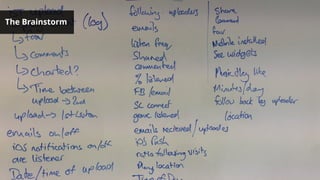 The Brainstorm
(log)
→ fav
↳ comments
↳ charted?
↳ Time between
upload → 2nd
upload → 1st listen
emails on/off
iOS notifications on/off
are listener
Date/time of upload
following uploaders
emails
listen freq
Shared
commented
% listened
FB/email
SC connect
genre listened
emails recieved/uploader
iOS Push
ratio following visits
Play location
Time of Day
Share
Comment
fav
Mobile installed
See widgets
Plain play like
Minutes/day
follow back by uploader
location